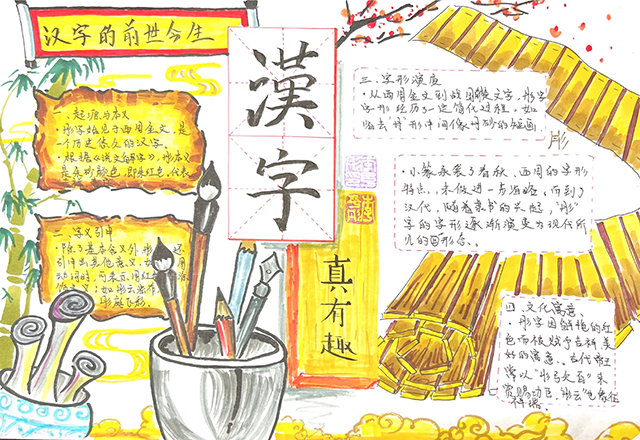 汉字的前世今生
漢
字
真有趣
一、起源与本义
·彤字始见于西周金文，是
一个历史悠久的汉字。
·根据《说文解字》，彤本义
是朱砂颜色，即朱红色，代表
二、字义引申
·除了基本含义外，彤
引申出其他意义，
动词时，可表示用红
三、字形演变
·从西周金文到战国楚文字，彤字
字形经历了一定简化过程。如
省去"丹"形中间像丹砂的短画
彤
·小篆承袭了春秋、西周的字形
特点，未做进一步省略，而到了
汉代，随着隶书的兴起，"彤"
字的字形逐渐演变为现代所
见的图形态。
四、文化寓意、
·彤字因鲜艳的红
色而被赋予吉祥美
好的寓意。古代帝王
常以"彤弓矢百"来
赏赐功臣，"彤云"也象征
祥瑞。